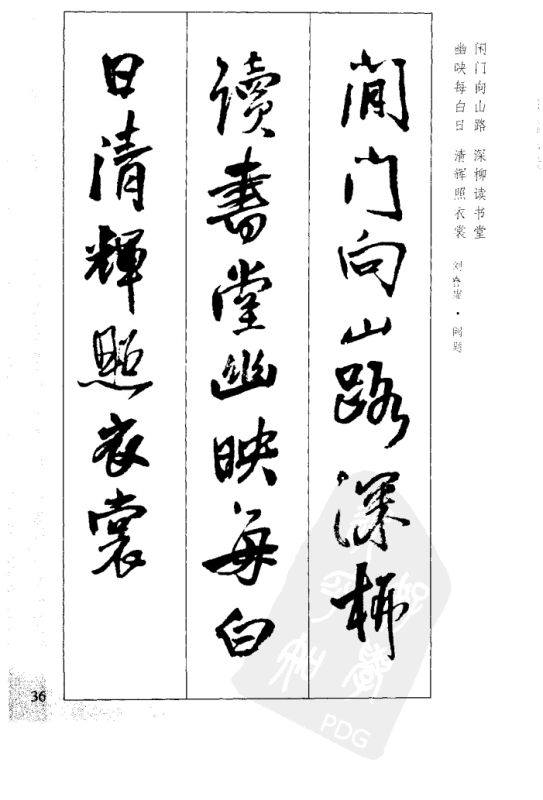 闲门向山路 深柳读书堂
幽映每白日 清辉照衣裳
刘眘虚·阙题
閒门向山路深柳
读書堂幽映每白
日清輝照衣裳
36
PDG